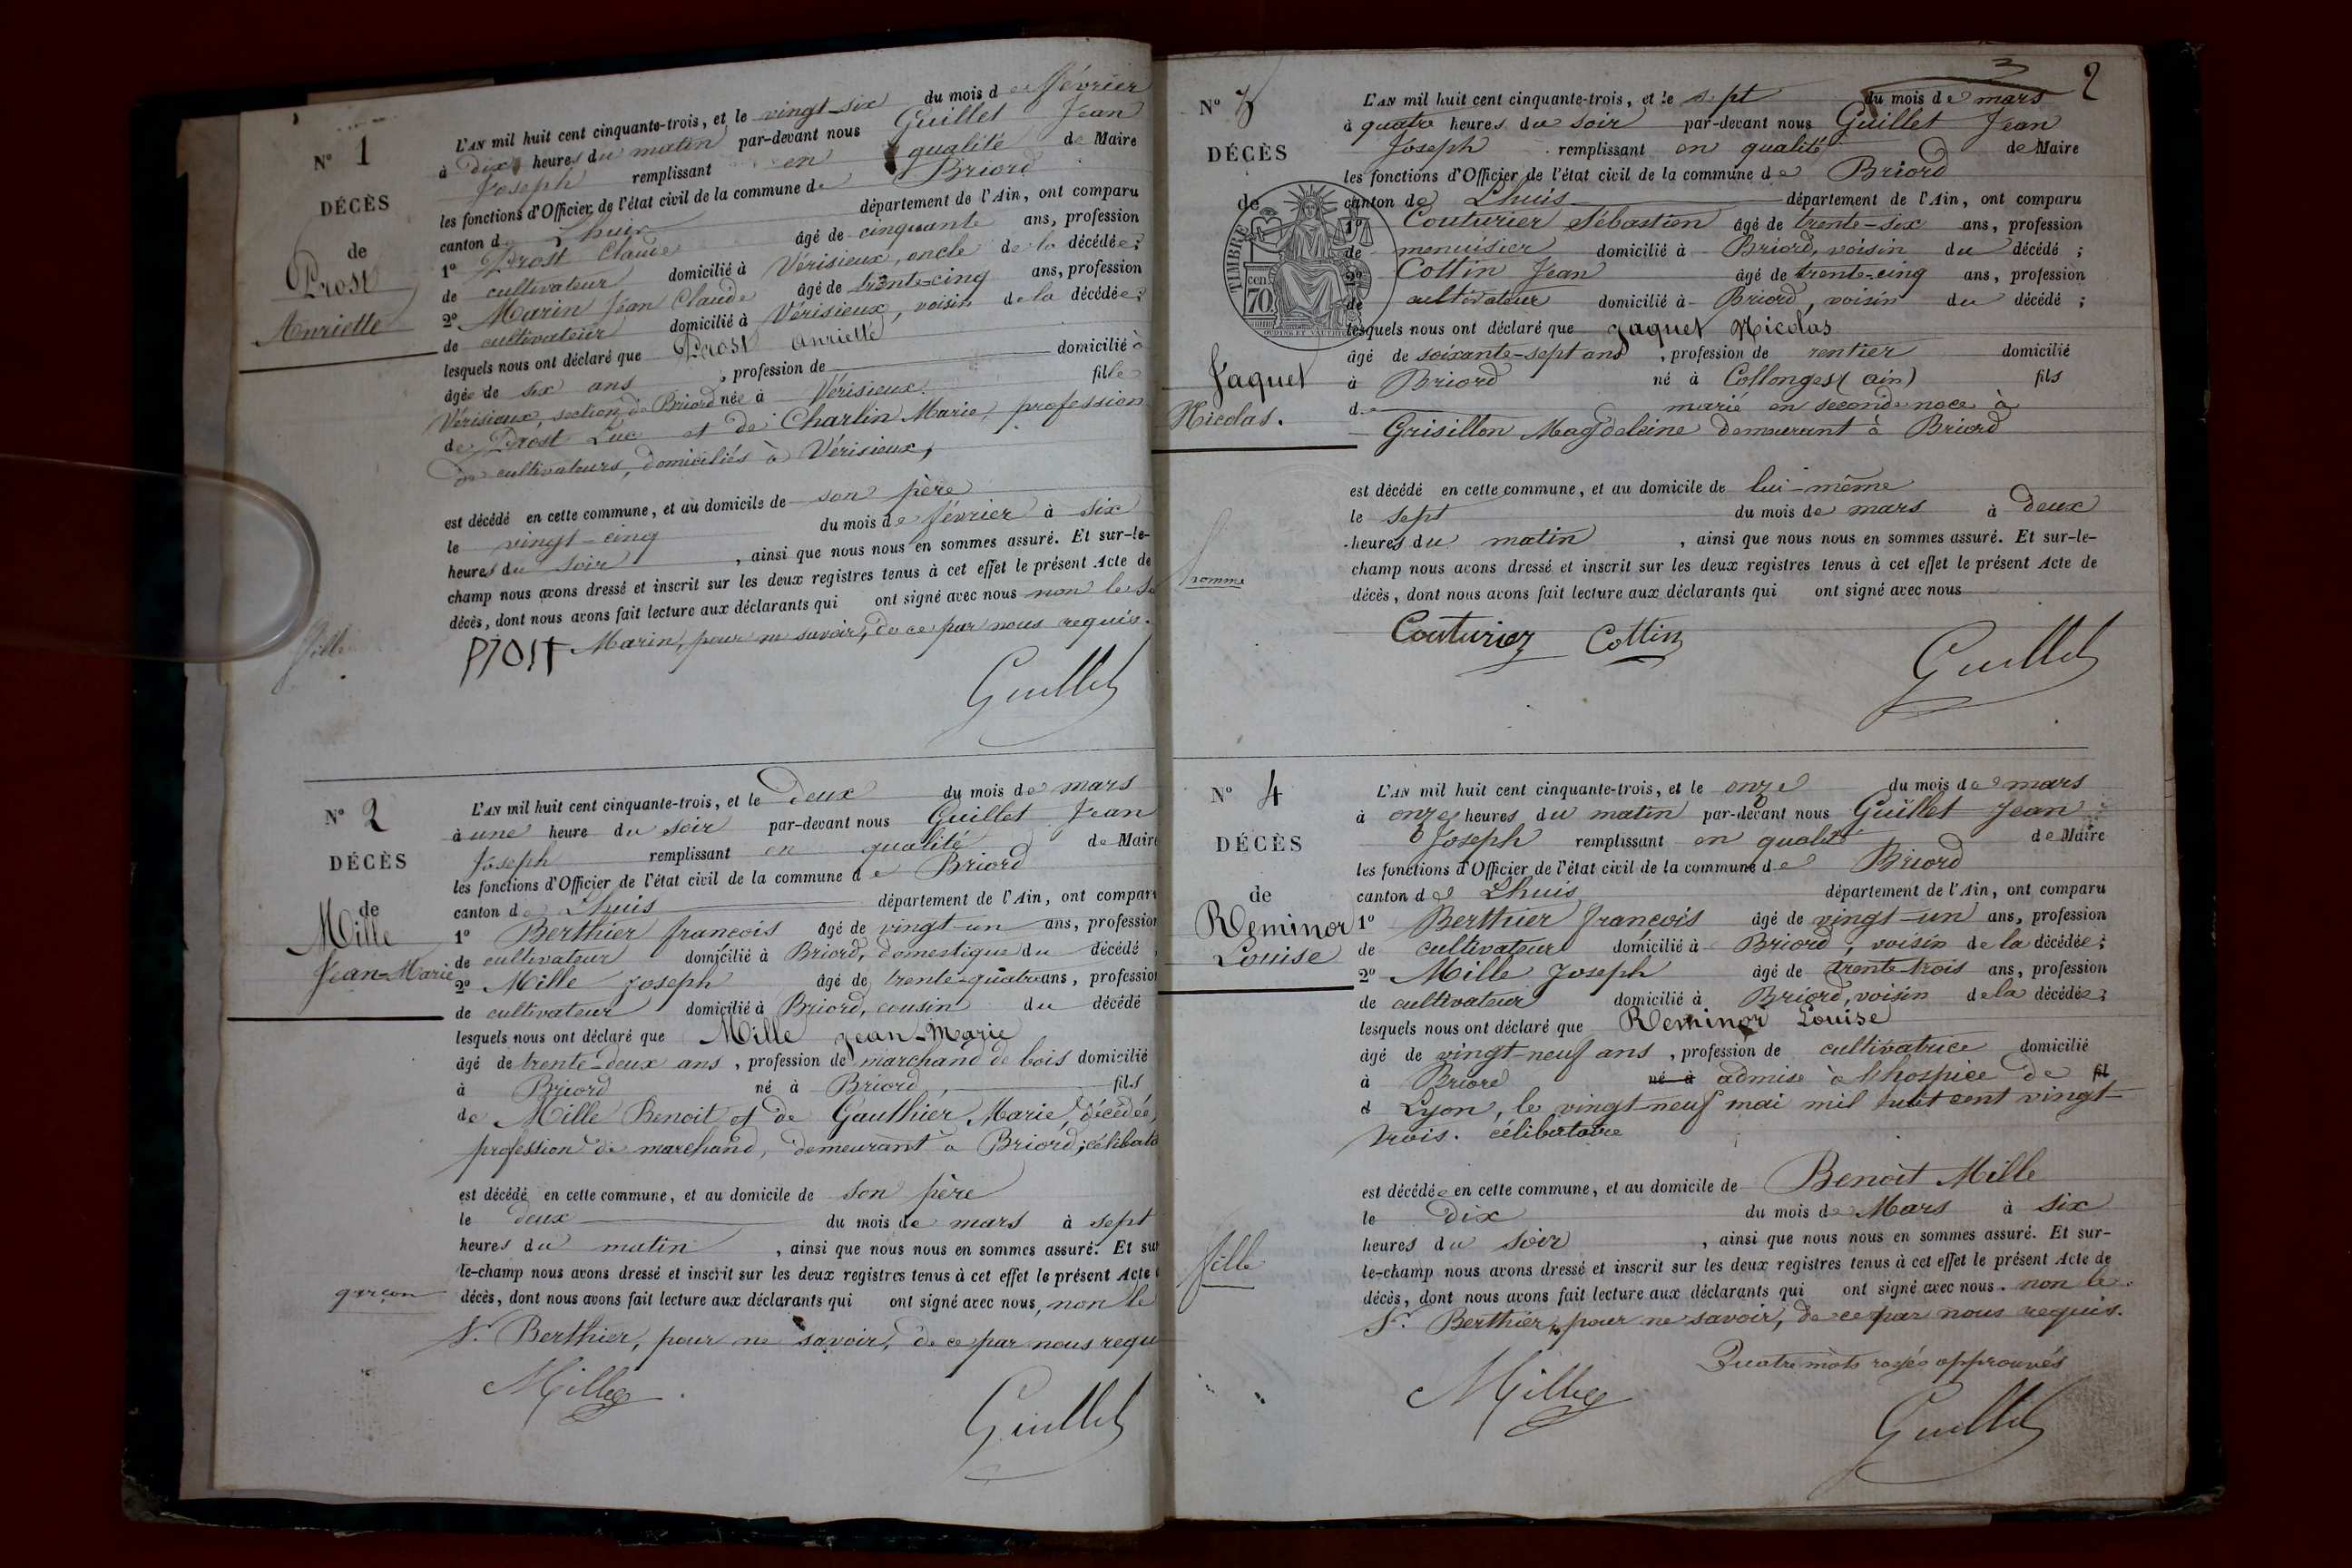 N° 1
DÉCÈS
de
Prost
Anriette
L'AN mil huit cent cinquante-trois, et le vingt-six du mois de février
à dix heures du matin par-devant nous Guillet Jean
Joseph remplissant en qualité de Maire
les fonctions d'Officier de l'état civil de la commune de Briord
canton de Lhuis département de l'Ain, ont comparu
1° Prost Claude âgé de cinquante ans, profession
de cultivateur domicilié à Vérisieux, oncle de la décédée;
2° Marin Jean Claude âgé de trente-cinq ans, profession
de cultivateur domicilié à Vérisieux, voisin de la décédée;
lesquels nous ont déclaré que Prost Anriette
âgée de six ans, profession de domicilié à
Vérisieux, section de Briord née à Vérisieux fille
de Prost Luc et de Charlin Marie, profession
de cultivateurs, domiciliés à Vérisieux,
est décédé en cette commune, et au domicile de son père
le vingt-cinq du mois de février à six
heures du soir, ainsi que nous nous en sommes assuré. Et sur-le-
champ nous avons dressé et inscrit sur les deux registres tenus à cet effet le présent Acte de
décès, dont nous avons fait lecture aux déclarants qui ont signé avec nous non le
Marin, pour ne savoir, de ce par nous requis.
fille
Prost
Guillet
N° 2
DÉCÈS
de
Mille
Jean-Marie
L'AN mil huit cent cinquante-trois, et le deux du mois de mars
à une heure du soir par-devant nous Guillet Jean
Joseph remplissant en qualité de Maire
les fonctions d'Officier de l'état civil de la commune de Briord
canton de Lhuis département de l'Ain, ont compar
1° Berthier françois âgé de vingt-un ans, profession
de cultivateur domicilié à Briord, domestique du décédé;
2° Mille Joseph âgé de trente-quatre ans, profession
de cultivateur domicilié à Briord, cousin du décédé
lesquels nous ont déclaré que Mille Jean-Marie
âgé de trente-deux ans, profession de marchand de bois domicilié
à Briord né à Briord, fils
de Mille Benoit et de Gauthier Marie, décédée,
profession de marchand, demeurant à Briord; célibata
est décédé en cette commune, et au domicile de son père
le deux du mois de mars à sept
heures du matin, ainsi que nous nous en sommes assuré. Et sur
le-champ nous avons dressé et inscrit sur les deux registres tenus à cet effet le présent Acte
décès, dont nous avons fait lecture aux déclarants qui ont signé avec nous, non le
garçon
Sr. Berthier, pour ne savoir, de ce par nous requ
Mille
Guillet
2
N° 3
DÉCÈS
de
TIMBRE
cen. 70.
Jaquet
Nicolas.
L'AN mil huit cent cinquante-trois, et le sept du mois de mars
à quatre heures du soir par-devant nous Guillet Jean
Joseph remplissant en qualité de Maire
les fonctions d'Officier de l'état civil de la commune de Briord
canton de Lhuis département de l'Ain, ont comparu
1° Couturier Sébastien âgé de trente-six ans, profession
de menuisier domicilié à Briord, voisin du décédé;
2° Cottin Jean âgé de trente-cinq ans, profession
de cultivateur domicilié à Briord, voisin du décédé;
lesquels nous ont déclaré que Jaquet Nicolas
âgé de soixante-sept ans, profession de rentier domicilié
à Briord né à Collonges (ain) fils
de marié en seconde noce à
Grisillon Magdeleine demeurant à Briord
est décédé en cette commune, et au domicile de lui-même
le sept du mois de mars à deux
heures du matin, ainsi que nous nous en sommes assuré. Et sur-le-
champ nous avons dressé et inscrit sur les deux registres tenus à cet effet le présent Acte de
décès, dont nous avons fait lecture aux déclarants qui ont signé avec nous
homme
Couturier Cottin
Guillet
N° 4
DÉCÈS
de
Reminor
Louise
L'AN mil huit cent cinquante-trois, et le onze du mois de mars
à onze heures du matin par-devant nous Guillet Jean
Joseph remplissant en qualité de Maire
les fonctions d'Officier de l'état civil de la commune de Briord
canton de Lhuis département de l'Ain, ont comparu
1° Berthier françois âgé de vingt-un ans, profession
de cultivateur domicilié à Briord, voisin de la décédée;
2° Mille Joseph âgé de trente-trois ans, profession
de cultivateur domicilié à Briord, voisin de la décédée;
lesquels nous ont déclaré que Reminor Louise
âgé de vingt-neuf ans, profession de cultivatrice domicilié
à Briord né à admise à l'hospice de fil
d Lyon, le vingt-neuf mai mil huit cent vingt-
trois. célibataire
est décédée en cette commune, et au domicile de Benoit Mille
le dix du mois de Mars à six
heures du soir, ainsi que nous nous en sommes assuré. Et sur-
le-champ nous avons dressé et inscrit sur les deux registres tenus à cet effet le présent Acte de
décès, dont nous avons fait lecture aux déclarants qui ont signé avec nous. non le
fille
Sr. Berthier, pour ne savoir, de ce par nous requis.
Quatre mots rayés approuvés
Mille
Guillet